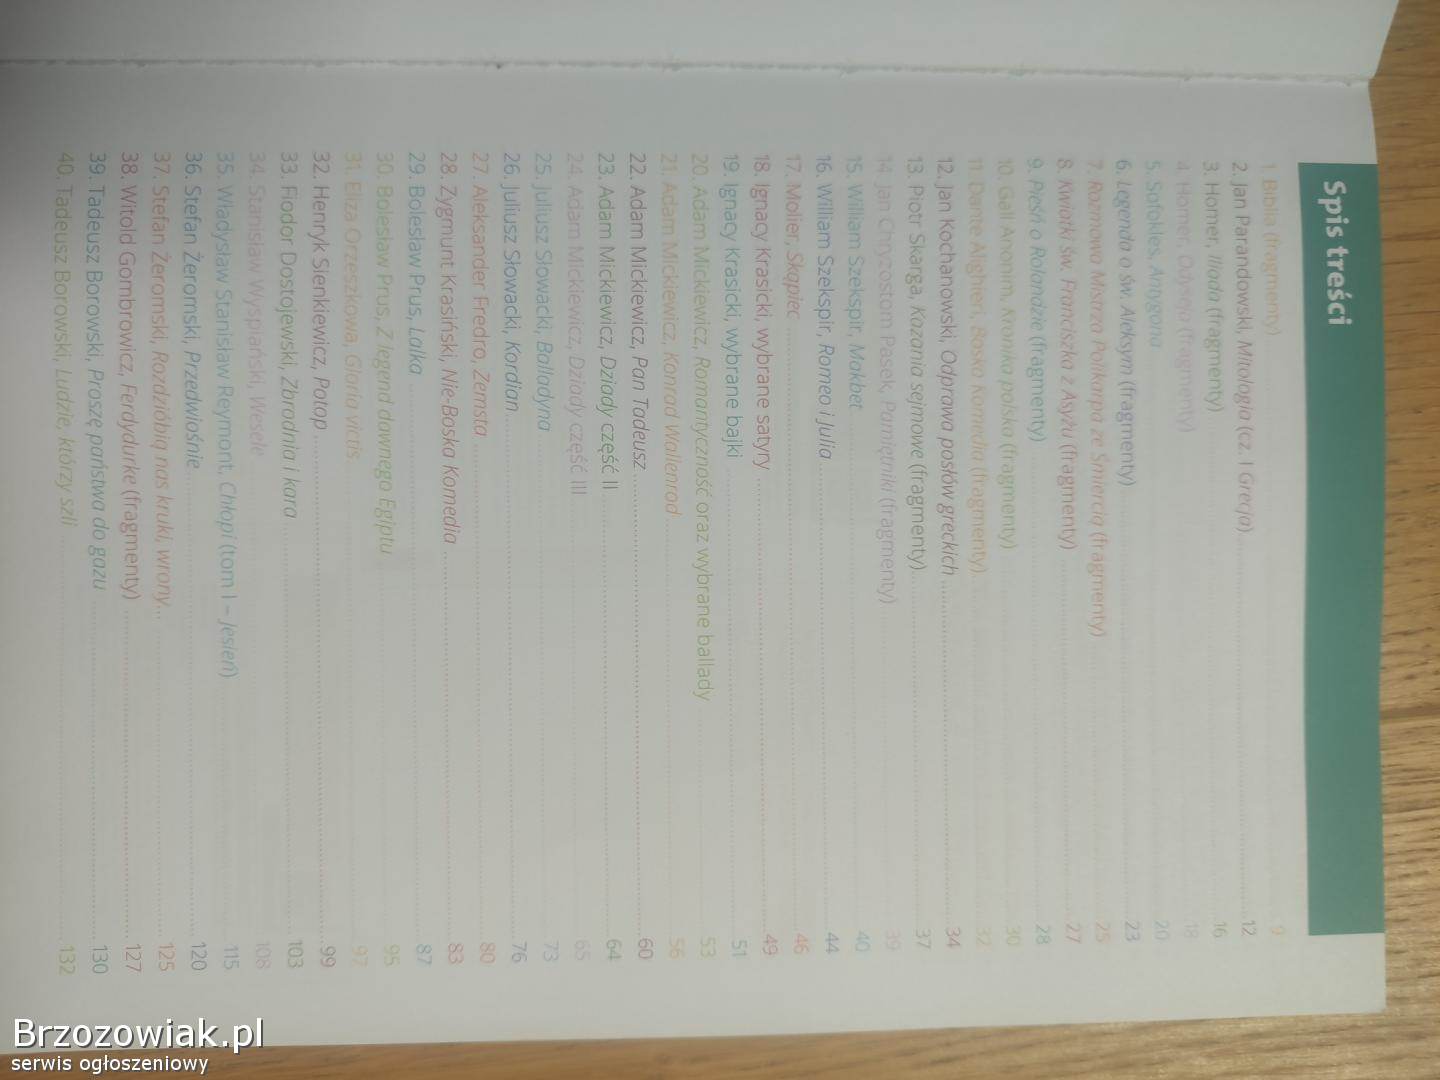 Spis treści
1. Biblia (fragmenty) 9
2. Jan Parandowski, Mitologia (cz. I Grecja) 12
3. Homer, Iliada (fragmenty) 16
4. Homer, Odyseja (fragmenty) 18
5. Sofokles, Antygona 20
6. Legenda o św. Aleksym (fragmenty) 23
7. Rozmowa Mistrza Polikarpa ze Śmiercią (fragmenty) 25
8. Kwiatki św. Franciszka z Asyżu (fragmenty) 27
9. Pieśń o Rolandzie (fragmenty) 28
10. Gall Anonim, Kronika polska (fragmenty) 30
11. Dante Alighieri, Boska Komedia (fragmenty) 32
12. Jan Kochanowski, Odprawa posłów greckich 34
13. Piotr Skarga, Kazania sejmowe (fragmenty) 37
14. Jan Chryzostom Pasek, Pamiętniki (fragmenty) 39
15. William Szekspir, Makbet 40
16. William Szekspir, Romeo i Julia 44
17. Molier, Skąpiec 46
18. Ignacy Krasicki, wybrane satyry 49
19. Ignacy Krasicki, wybrane bajki 51
20. Adam Mickiewicz, Romantyczność oraz wybrane ballady 53
21. Adam Mickiewicz, Konrad Wallenrod 56
22. Adam Mickiewicz, Pan Tadeusz 60
23. Adam Mickiewicz, Dziady część II 64
24. Adam Mickiewicz, Dziady część III 65
25. Juliusz Słowacki, Balladyna 73
26. Juliusz Słowacki, Kordian 76
27. Aleksander Fredro, Zemsta 80
28. Zygmunt Krasiński, Nie-Boska Komedia 83
29. Bolesław Prus, Lalka 87
30. Bolesław Prus, Z legend dawnego Egiptu 95
31. Eliza Orzeszkowa, Gloria victis 97
32. Henryk Sienkiewicz, Potop 99
33. Fiodor Dostojewski, Zbrodnia i kara 103
34. Stanisław Wyspiański, Wesele 108
35. Władysław Stanisław Reymont, Chłopi (tom I – Jesień) 115
36. Stefan Żeromski, Przedwiośnie 120
37. Stefan Żeromski, Rozdzióbią nas kruki, wrony... 125
38. Witold Gombrowicz, Ferdydurke (fragmenty) 127
39. Tadeusz Borowski, Proszę państwa do gazu 130
40. Tadeusz Borowski, Ludzie, którzy szli 132
Brzozowiak.pl
serwis ogłoszeniowy